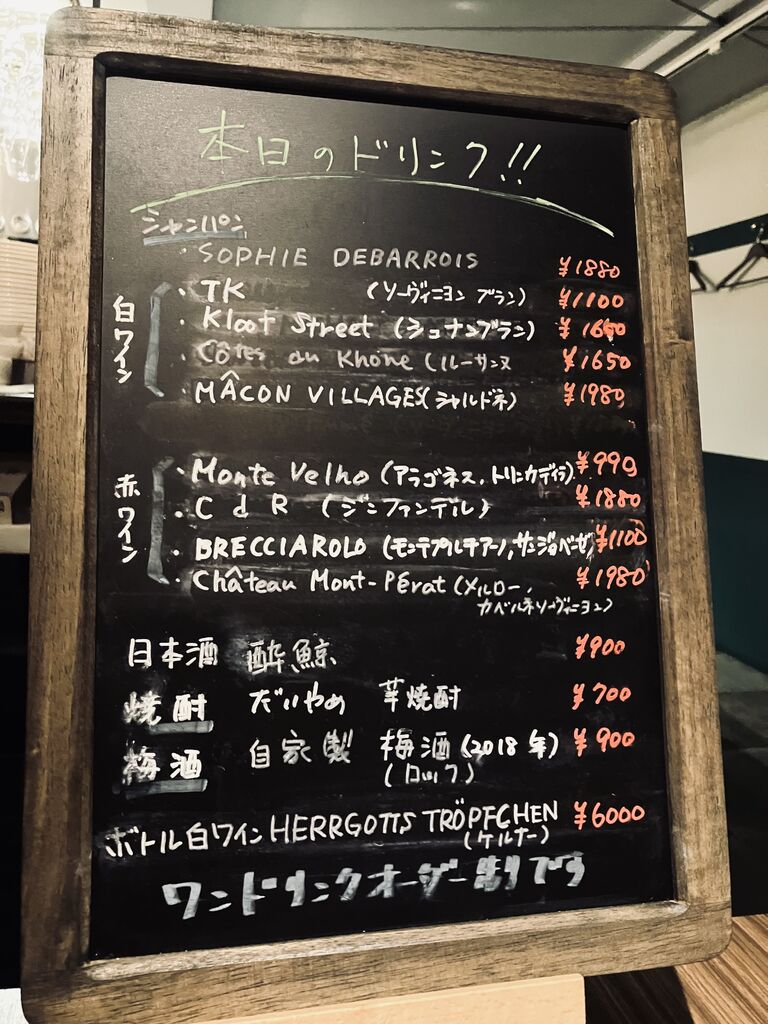 本日のドリンク!!
シャンパン
・SOPHIE DEBARROIS ¥1880
白ワイン
・TK (ソーヴィニヨン ブラン) ¥1100
・Kloof Street (シュナンブラン) ¥1650
・Côtes du Rhône (ルーサンヌ ¥1650
・MÂCON VILLAGES (シャルドネ) ¥1980
赤ワイン
・Monte Velho (アラゴネス、トリンカディラ) ¥990
・C d R (ジンファンデル) ¥1880
・BRECCIAROLO (モンテプルチアーノ,サンジョベーゼ) ¥1100
・Château Mont-Pérat (メルロー、 ¥1980
カベルネソーヴィニヨン)
日本酒 酔鯨 ¥900
焼酎 だいやめ 芋焼酎 ¥700
梅酒 自家製 梅酒 (2018年) ¥900
(ロック)
ボトル白ワイン HERRGOTTS TRÖPFCHEN ¥6000
(ケルナー)
ワンドリンクオーダー制です